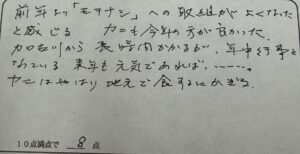 前年より「モテナシ」への取組がよくなった
と感じる カニも今年の方が良かった.
から長時間かかるが、年中行事と
なっている 来年も元気であれば、……
カニはやはり地元で食するにかぎる.
10点満点で 8 点